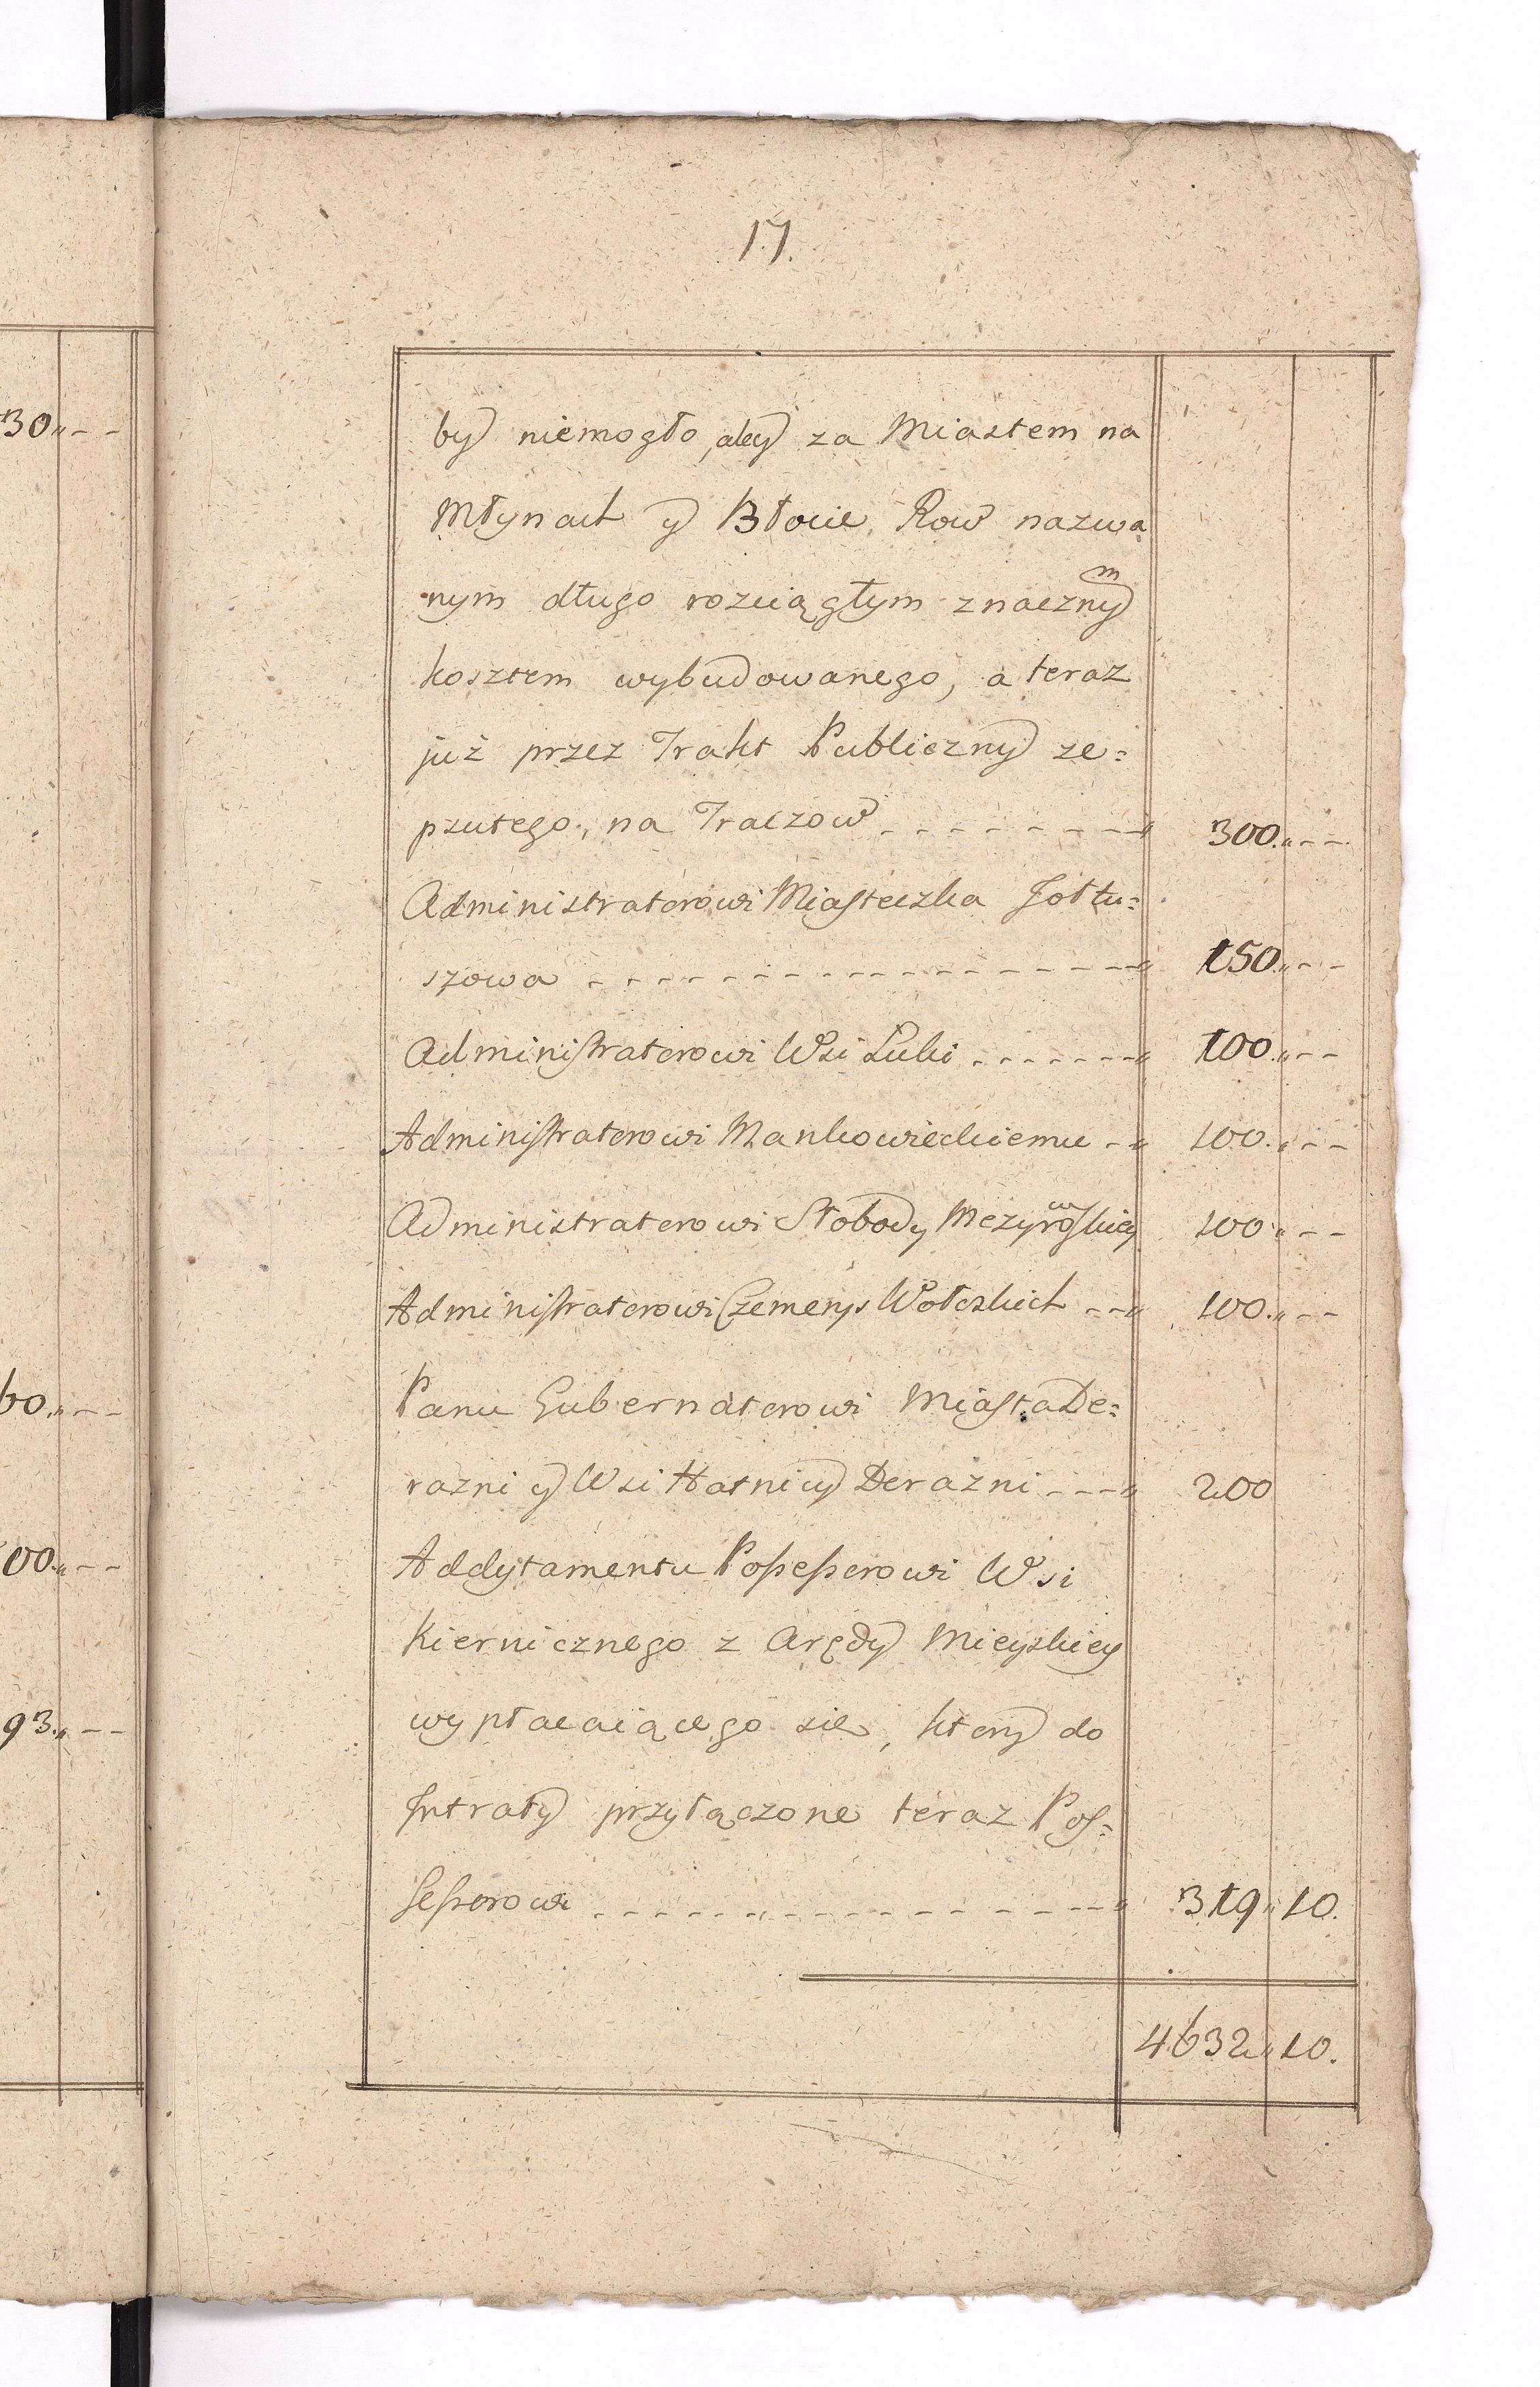 30 „ - -
60 „ - -
00 „ - -
93 „ - -
17.
by niemogło, aby za Miastem na
Młynach y Błocie, Row nazwa
nym długo rozciągłym znacznym
kosztem wybudowanego, a teraz
już przez Trakt Publiczny ze=
psutego, na Traczow - - - - - - - - „ 300 „ - -
Administratorowi Miasteczka Jołtu=
szowa - - - - - - - - - - - - - - - „ 150 „ - -
Administratorowi Wsi Luki - - - - - - „ 100 „ - -
Administratorowi Mankowieckiemu - „ 100 „ - -
Administratorowi Słobody Mezyrowskiey 100 „ - -
Administratorowi Czemerys Wołoskich - - „ 100 „ - -
Panu Gubernatorowi Miasta De=
razni y Wsi Hatnicy Derazni - - - „ 200
Addytamentu Possessorowi Wsi
Kiernicznego z Arędy Mieyskiey
wypłacaiącego sie, ktory do
Intraty przyłączone teraz Pos=
sessorowi - - - - - - - - - - - - - „ 319 „ 10.
4632 „ 10.